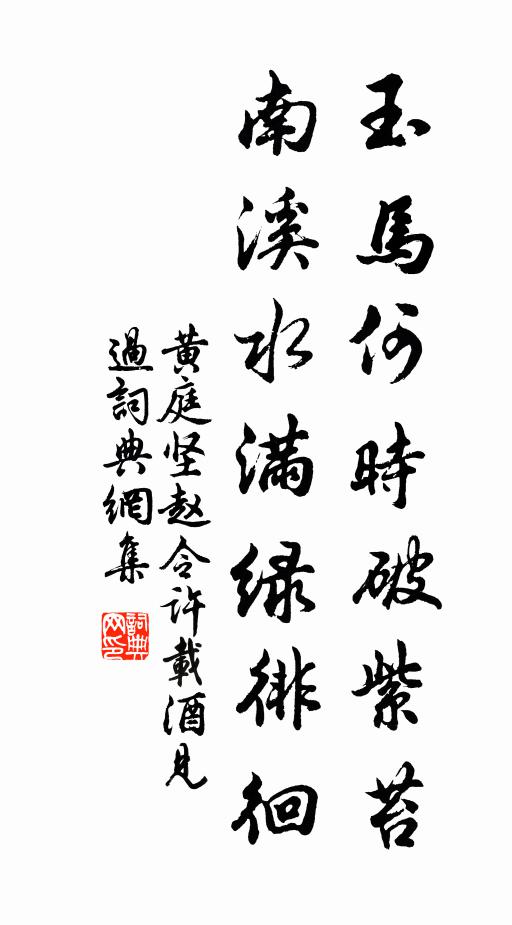 玉馬何時破紫苔
南溪水滿綠徘徊
黃庭坚赵令许載酒見
過詞典網集
詞典网印